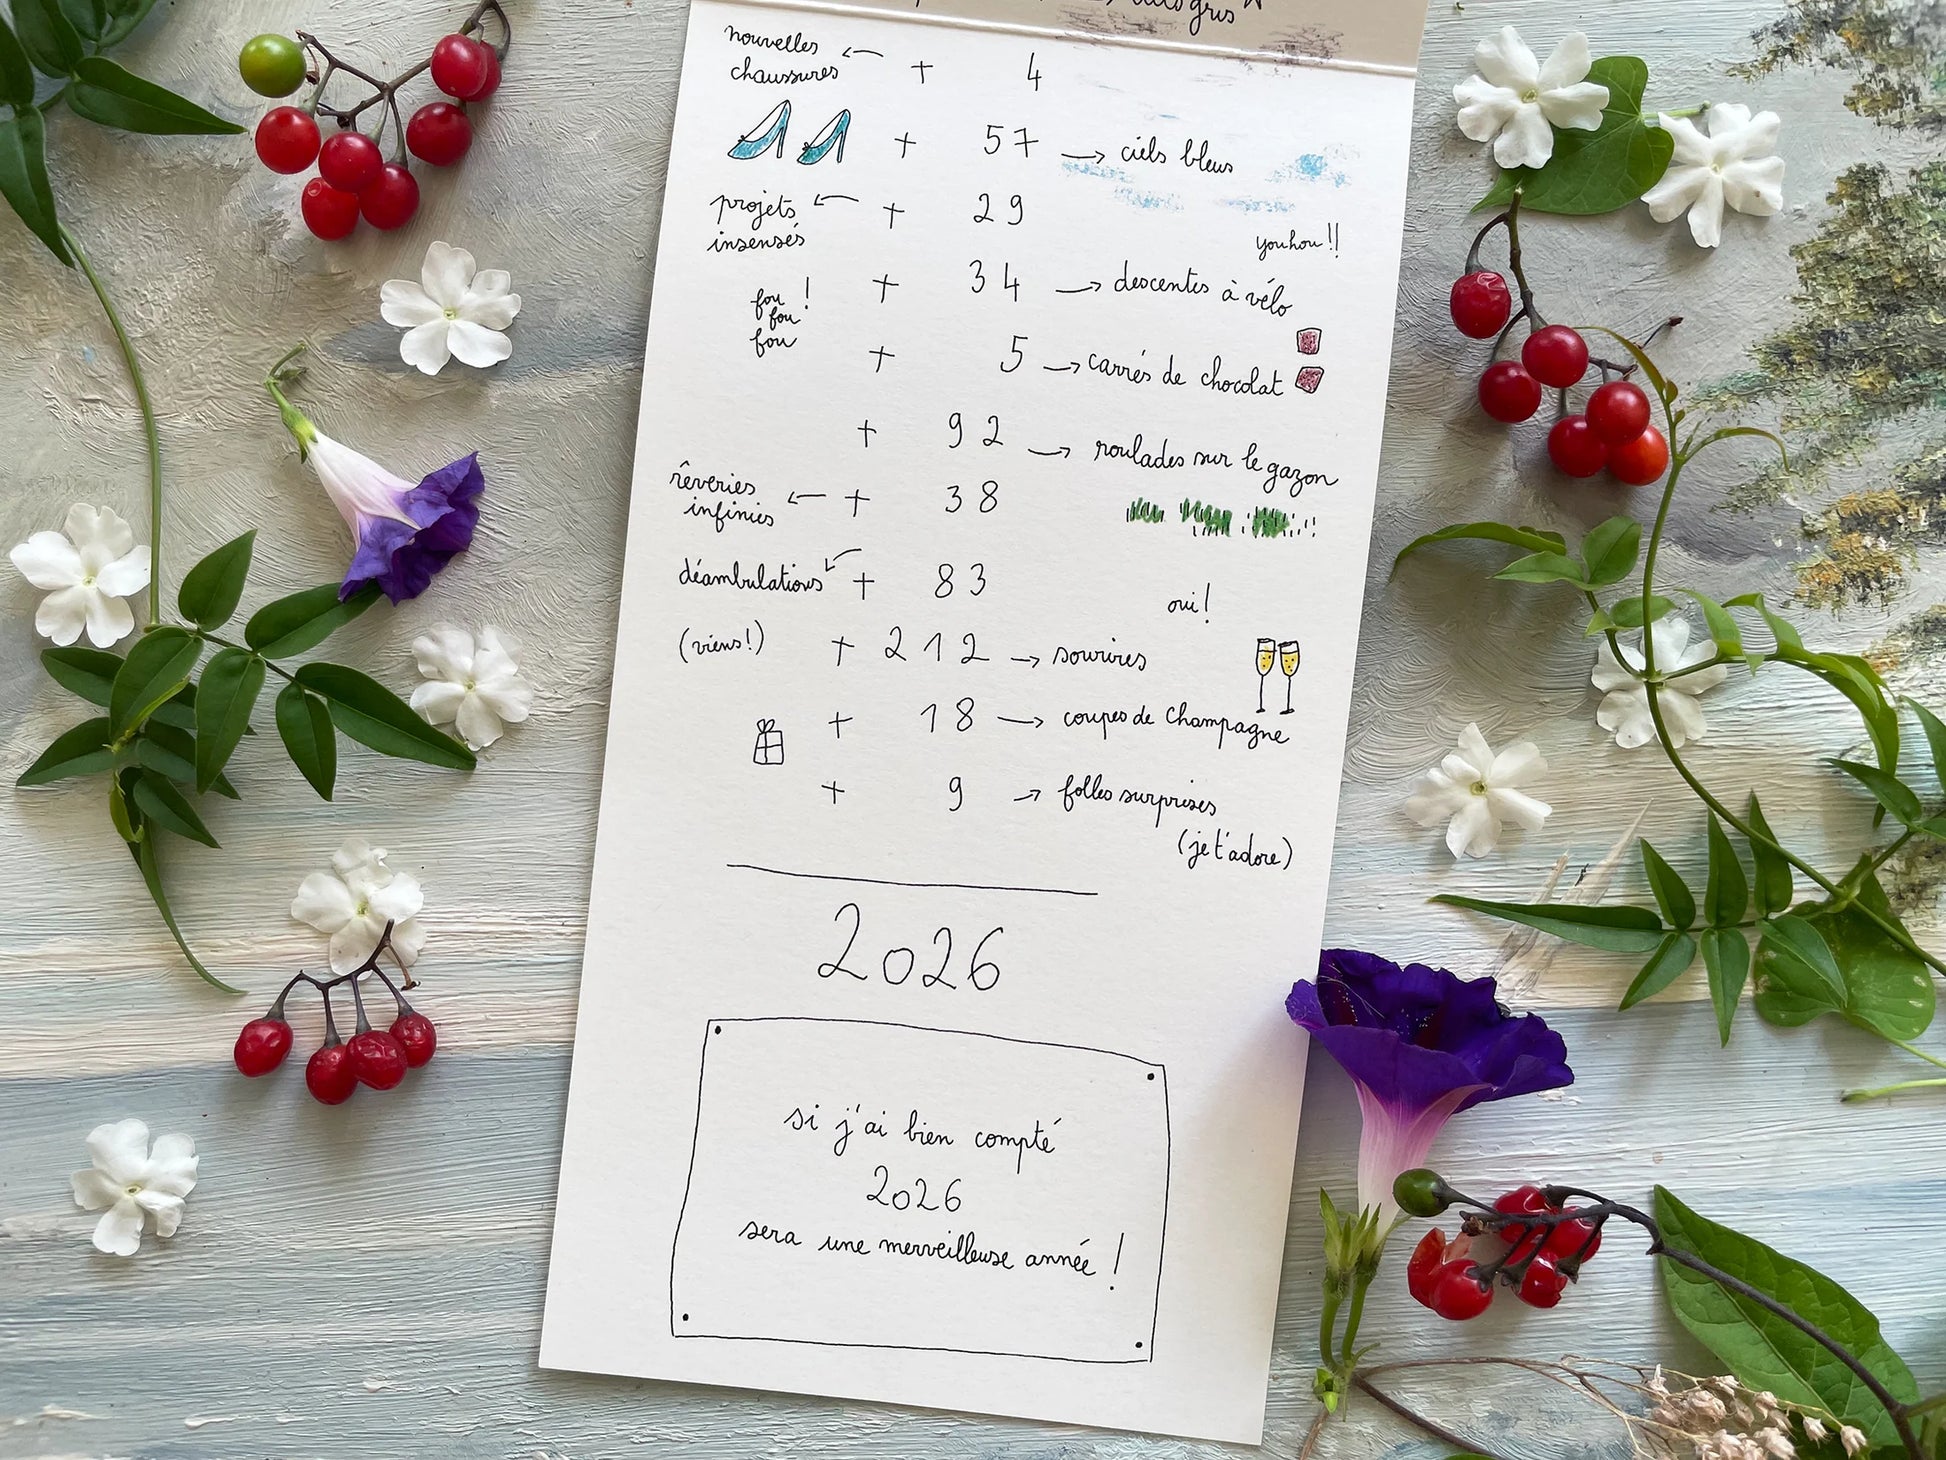 nouvelles
chaussures ← + 4
+ 57 → ciels bleus
projets ← + 29
insensés
youhou !!
fou !
fou
fou
+ 34 → descentes à vélo
+ 5 → carrés de chocolat
+ 92 → roulades sur le gazon
rêveries
infinies ← + 38
déambulations ← + 83
(viens !)
oui !
+ 212 → sourires
+ 18 → coupes de champagne
+ 9 → folles surprises
(je t'adore)
2026
si j'ai bien compté
2026
sera une merveilleuse année !